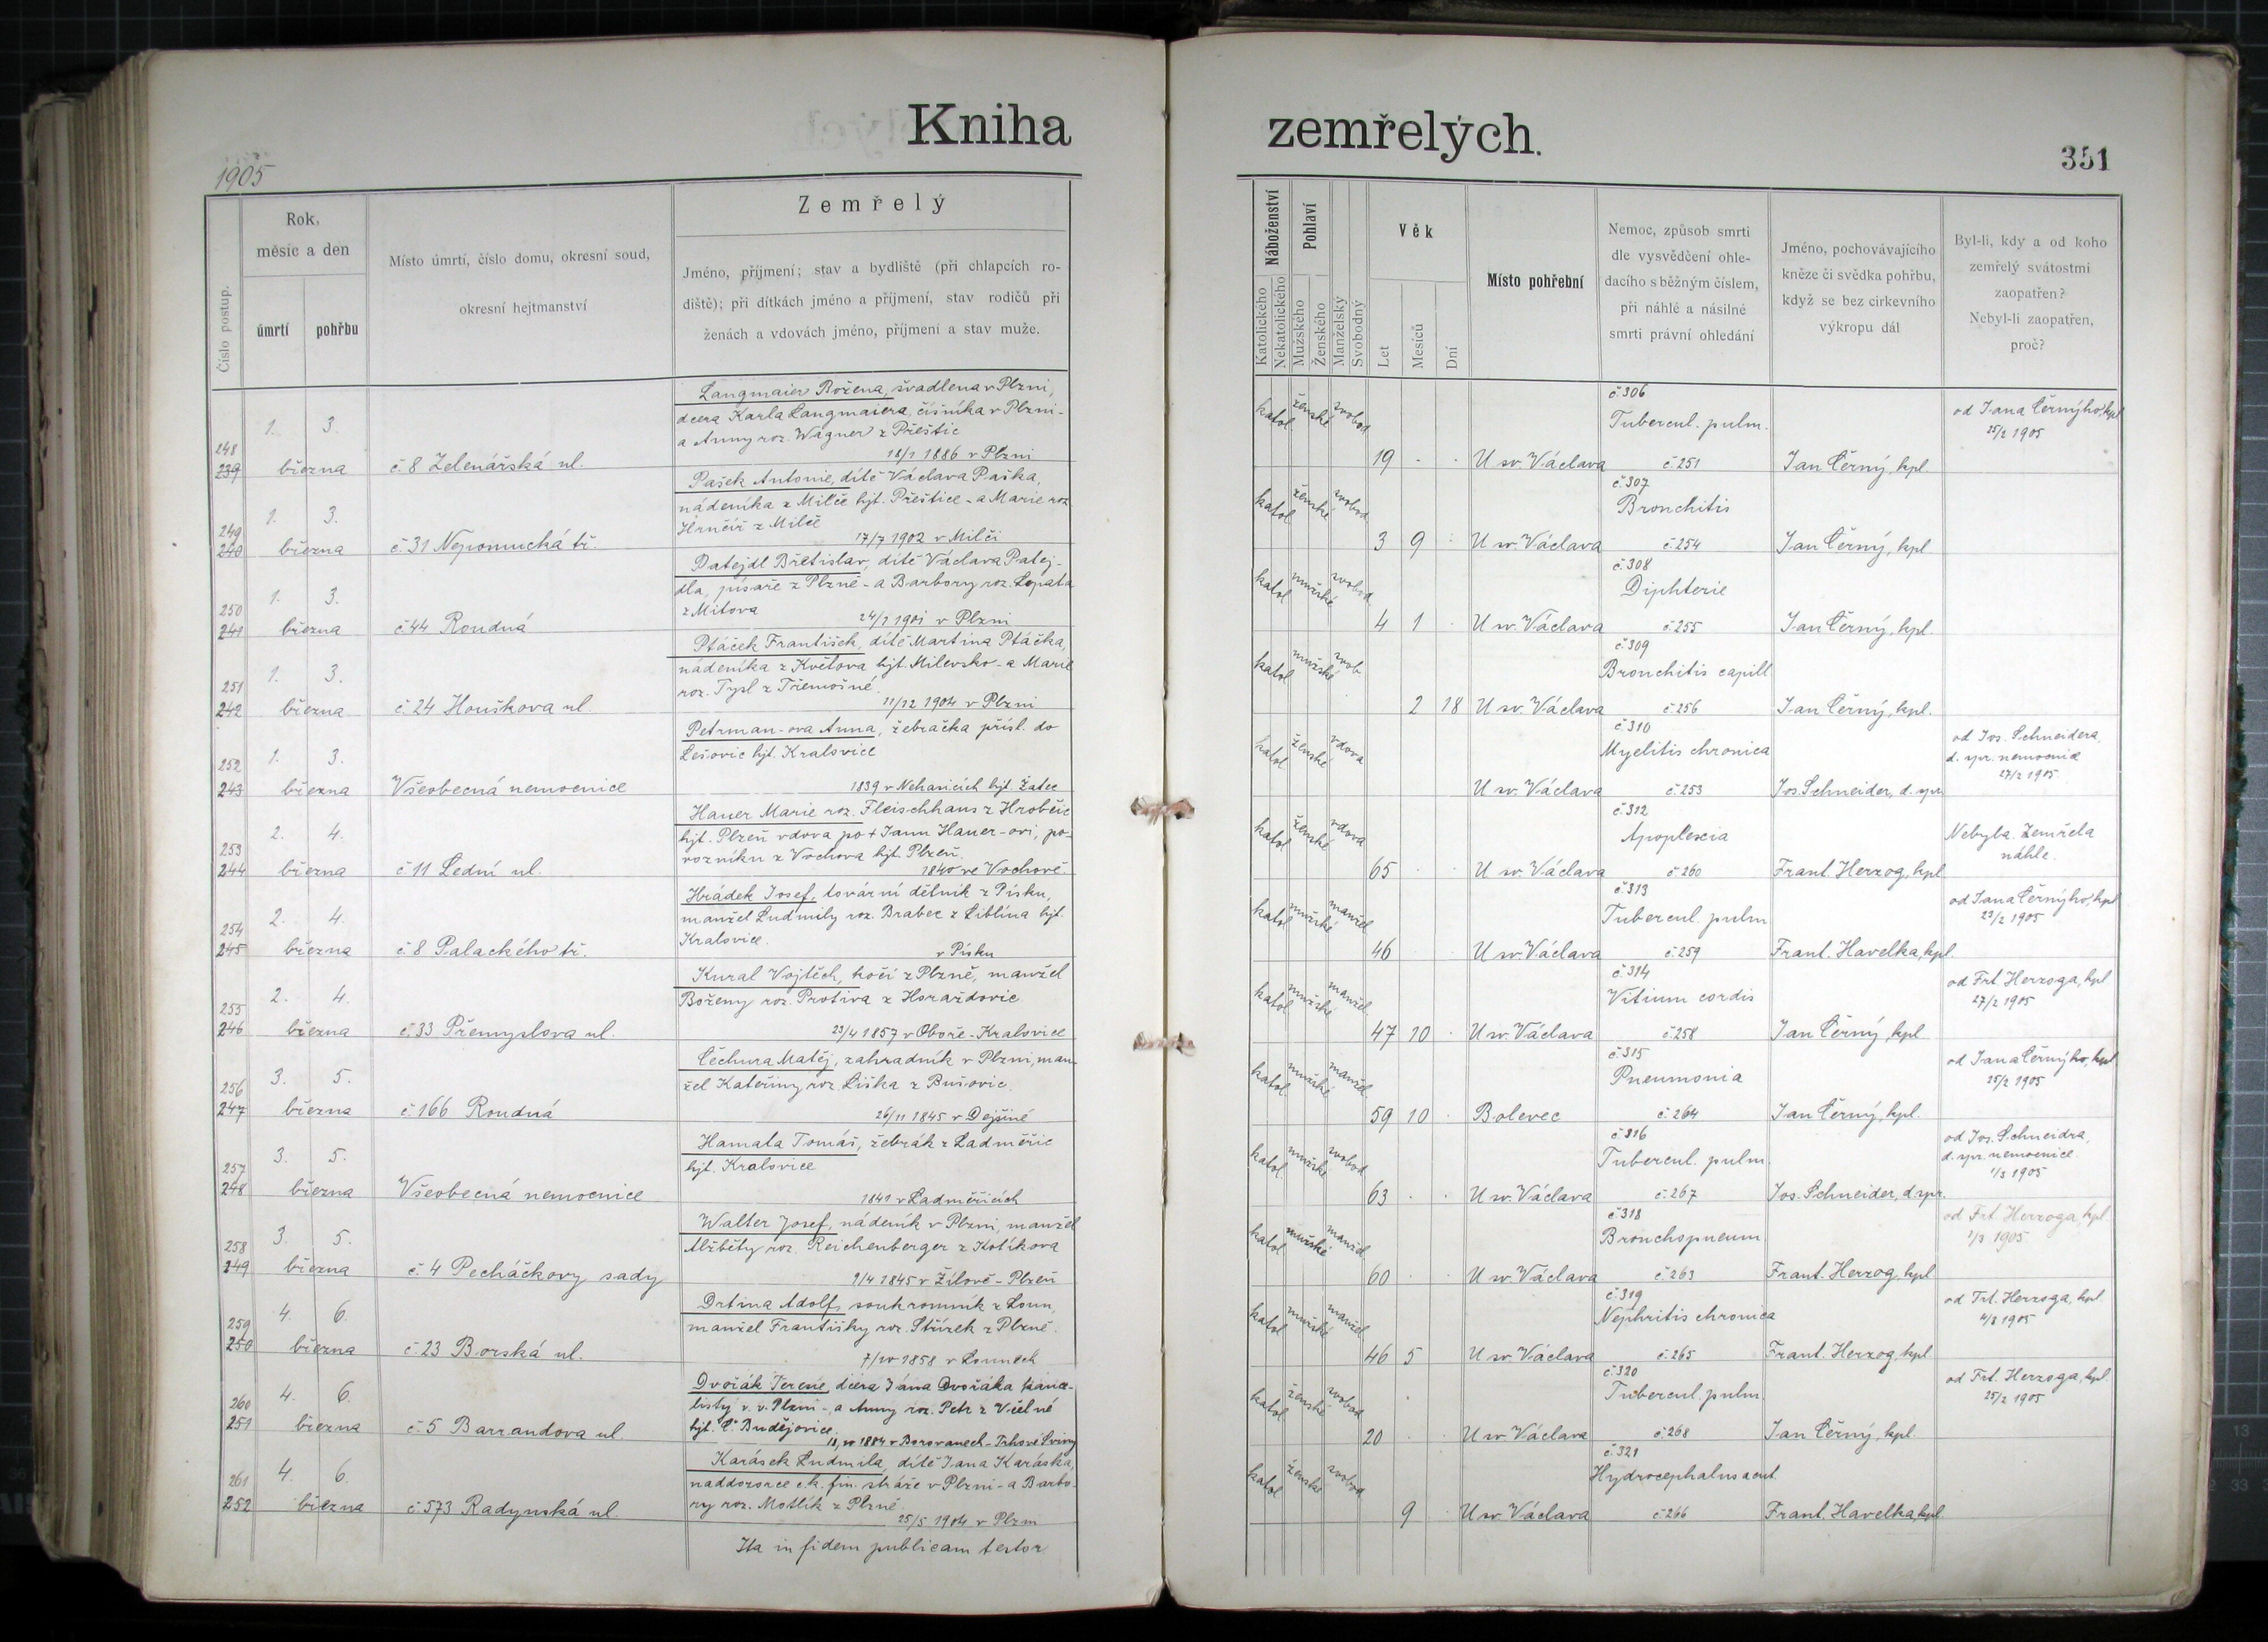 Kniha
zemřelých.
1905
351
Číslo postup.
Rok,
měsíc a den
úmrtí
pohřbu
Místo úmrtí, číslo domu, okresní soud,
okresní hejtmanství
Zemřelý
Jméno, příjmení; stav a bydliště (při chlapcích ro-
diště); při dítkách jméno a příjmení, stav rodičů při
ženách a vdovách jméno, příjmení a stav muže.
Náboženství
Katolického
Nekatolického
Pohlaví
Mužského
Ženského
Manželský
Svobodný
Věk
Let
Mesíců
Dní
Místo pohřební
Nemoc, způsob smrti
dle vysvědčení ohle-
dacího s běžným číslem,
při náhlé a násilné
smrti právní ohledání
Jméno, pochovávajícího
kněze či svědka pohřbu,
když se bez církevního
výkropu dál
Byl-li, kdy a od koho
zemřelý svátostmi
zaopatřen?
Nebyl-li zaopatřen,
proč?
248
239
1. 3.
března
č. 8 Zelenářská ul.
Langmaier Božena, švadlena v Plzni,
dcera Karla Langmaiera, číšníka v Plzni -
a Anny roz. Wagner z Přeštic
18/1 1886 v Plzni
katol ženské svobod
19 . .
U sv. Václava
č. 306
Tubercul. pulm.
č. 251
Jan Černý, kpl
od Jana Černýho, kpl
25/2 1905
249
240
1. 3.
března
č. 31 Nepomucká tř.
Pašek Antonie, dítě Václava Paška,
nádeníka z Milče hjt. Přeštice - a Marie roz
Hrnčíř z Milče
17/7 1902 v Milči
katol ženské svobod
3 9 .
U sv. Václava
č. 307
Bronchitis
č. 254
Jan Černý, kpl
250
241
1. 3.
března
č. 44 Roudná
Patejdl Břetislav, dítě Václava Patej-
dla, písaře z Plzně - a Barbory roz. Lopata
z Mitova
24/1 1901 v Plzni
katol mužské svobod
4 1 .
U sv. Václava
č. 308
Diphterie
č. 255
Jan Černý, kpl.
251
242
1. 3.
března
č. 24 Houškova ul.
Ptáček František, dítě Martina Ptáčka,
nádeníka z Květova hjt. Milevsko - a Marie
roz. Tysl z Třemošné.
11/12 1904 v Plzni
katol mužské svob
2 18
U sv. Václava
č. 309
Bronchitis capill
č. 256
Jan Černý, kpl.
252
243
1. 3.
března
Všeobecná nemocnice
Petrman-ova Anna, žebračka přísl. do
Lešovic hjt. Kralovice
1839 v Nehasicích hjt. Žatec
katol ženské vdova
U sv. Václava
č. 310
Myelitis chronica
č. 253
Jos. Schneider, d. spr
od Jos. Schneidera,
d. spr. nemocnice
27/2 1905
253
244
2. 4.
března
č. 11 Lední ul.
Hauer Marie roz. Fleischhans z Hrobčic
hjt. Plzeň vdova po † Janu Hauer-ovi, po-
vozníku z Vochova hjt. Plzeň.
1840 ve Vochově.
katol ženské vdova
65 . .
U sv. Václava
č. 312
Apoplexia
č. 260
Frant. Herzog, kpl
Nebyla. Zemřela
náhle.
254
245
2. 4.
března
č. 8 Palackého tř.
Hrádek Josef, tovární dělník z Písku,
manžel Ludmily roz. Brabec z Liblína hjt.
Kralovice.
v Písku
katol mužské manžel
46 . .
U sv. Václava
č. 313
Tubercul. pulm
č. 259
Frant. Havelka, kpl.
od Jana Černýho, kpl
23/2 1905
255
246
2. 4.
března
č. 33 Přemyslova ul.
Kural Vojtěch, kočí z Plzně, manžel
Boženy roz. Protiva z Horažďovic
23/4 1857 v Oboře - Kralovice
katol mužské manžel
47 10 .
U sv. Václava
č. 314
Vitium cordis
č. 258
Jan Černý, kpl.
od Frt. Herzoga, kpl
27/2 1905
256
247
3. 5.
března
č. 166 Roudná
Čechura Matěj, zahradník v Plzni, man-
žel Kateřiny roz. Liška z Bušovic.
26/11 1845 v Dejšině
katol mužské manžel
59 10 .
Bolevec
č. 315
Pneumonia
č. 264
Jan Černý, kpl.
od Jana Černýho, kpl
25/2 1905
257
248
3. 5.
března
Všeobecná nemocnice
Hamata Tomáš, žebrák z Ladměřic
hjt. Kralovice
1841 v Ladměřicích
katol mužské svobod
63 . .
U sv. Václava
č. 316
Tubercul. pulm.
č. 267
Jos. Schneider, d. spr.
od Jos. Schneidra,
d. spr. nemocnice.
1/3 1905
258
249
3. 5.
března
č. 4 Pecháčkovy sady
Walter Josef, nádeník v Plzni, manžel
Alžběty roz. Reichenberger z Kotíkova
9/4 1845 v Žilově - Plzeň
katol mužské manžel
60 . .
U sv. Václava
č. 318
Bronchopneum
č. 263
Frant. Herzog, kpl
od Frt. Herzoga, kpl
1/3 1905
259
250
4. 6.
března
č. 23 Borská ul.
Drtina Adolf, soukromník z Loun,
manžel Františky roz. Střízek z Plzně.
7/10 1858 v Lounech
katol mužské manžel
46 5
U sv. Václava
č. 319
Nephritis chronica
č. 265
Frant. Herzog, kpl
od Frt. Herzoga, kpl.
4/3 1905
260
251
4. 6.
března
č. 5 Barrandova ul.
Dvořák Terezie, dcera Jána Dvořáka kance-
listy v. v. Plzni -, a Anny roz. Petr z Včelné
hjt. Č. Budějovice.
1884 v Borovanech - Trhové Sviny
katol ženské svobod
20 . .
U sv. Václava
č. 320
Tubercul. pulm.
č. 268
Jan Černý, kpl.
od Frt. Herzoga, kpl.
25/2 1905
261
252
4. 6.
března
č. 573 Radynská ul.
Karásek Ludmila, dítě Jana Karáska,
naddozorce c. k. fin. stráže v Plzni - a Barbo-
ry roz. Motlík z Plzně.
25/5 1904 v Plzni
katol ženské svobod
9
U sv. Václava
č. 321
Hydrocephalus acut
č. 266
Frant. Havelka, kpl.
Ita in fidem publicam testor